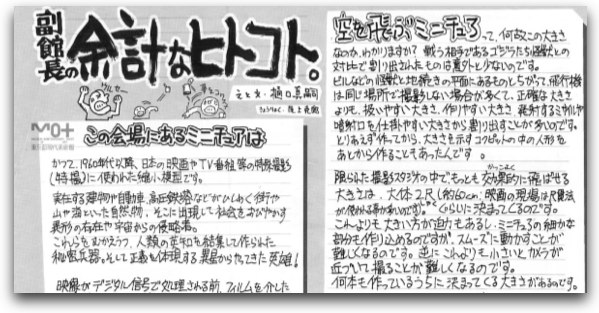 副館長の余計なヒトコト。
えと文・樋口真嗣
MOT
この会場にあるミニチュアは
かつて、1960年代以降、日本の映画やTV番組等の特殊撮影
(特撮)に使われた縮小模型です。
実在する建物や自動車、高圧鉄塔などがひしめく街や
山や海といった自然物、そこに出現して社会をおびやかす
異形の存在や宇宙からの侵略者。
これらをむかえうつ、人類の英知を結集して作られた
秘密兵器、そして正義を体現する異星からやってきた英雄!
映像がデジタル信号で処理される前、フィルムを介した
空を飛ぶミニチュア って、何故この大きさ
なのか、わかりますか? 戦う相手であるゴジラたち怪獣との
対比で割り出されたものは意外と少ないのです。
ビルなどの怪獣と地続きの平面にあるものとちがって、飛行機
は同じ場所で撮影しない場合が多くて、正確な大き
よりも、扱いやすい大きさ、作りやすい大きさ、発射するミサイルや
噴射口を仕掛やすい大きさから割り出すことが多いのです。
とりあえず作ってから、大きさを示すコクピットの中の人形を
あとから作ることもあったんです。
限られた撮影スタジオの中でもっとも効果的に飛ばせる
大きさは、大体2尺(約60cm:映画の現場は尺貫法
が使われる事が多いのです。)ぐらいに決まってくるのです。
これよりも大きい方が迫力もあるし、ミニチュアの細かな
部分も作り込めるのですが、スムーズに動かすことが
難しくなるのです。逆にこれよりも小さいとカメラが
近づいて撮ることが難しくなるのです。
何本も作っているうちに決まってくる大きさがあるのです。